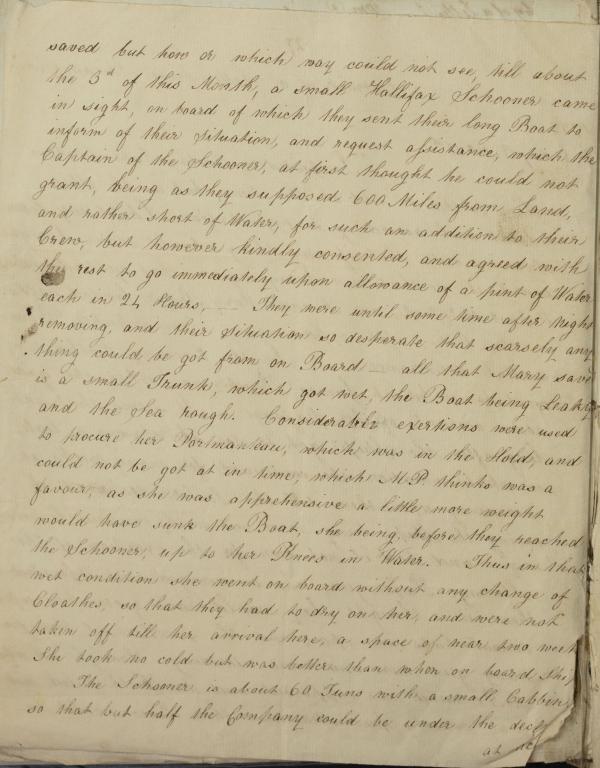 saved but how or which way could not see, till about
the 3d of this Month, a small Hallifax Schooner came
in sight, on board of which they sent their long Boat to
inform of their situation, and request assistance, which the
Captain of the Schooner, at first thought he could not
grant, being as they supposed 600 Miles from Land,
and rather short of Water, for such an addition to their
Crew, but however kindly consented, and agreed with
the rest to go immediately upon allowance of a pint of Water
each in 24 Hours, — They were until some time after night
removing, and their situation so desperate that scarsely any
thing could be got from on Board — all that Mary save
is a small Trunk, which got wet, the Boat being Leaky
and the Sea rough. Considerable exertions were used
to procure her Portmanteau, which was in the Hold, and
could not be got at in time, which M.P. thinks was a
favour, as she was apprehensive a little more weight
would have sunk the Boat, she being, before they reached
the Schooner, up to her Knees in Water. Thus in that
wet condition she went on board without any change of
Cloathes, so that they had to dry on her, and were not
taken off till her arrival here, a space of near two week
She took no cold but was better than when on board Shi
The Schooner is about 60 Tuns with a small Cabbin,
so that but half the Company could be under the deck
at